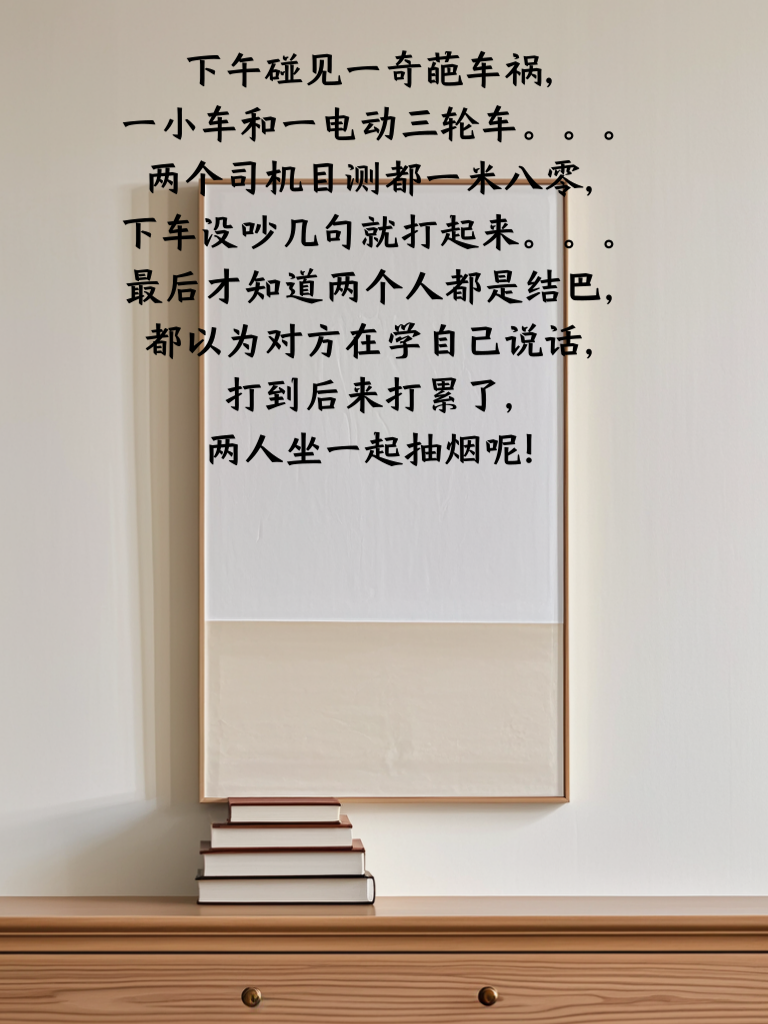 下午碰见一奇葩车祸,
一小车和一电动三轮车。。。
两个司机目测都一米八零,
下车没吵几句就打起来。。。
最后才知道两个人都是结巴,
都以为对方在学自己说话,
打到后来打累了,
两人坐一起抽烟呢!